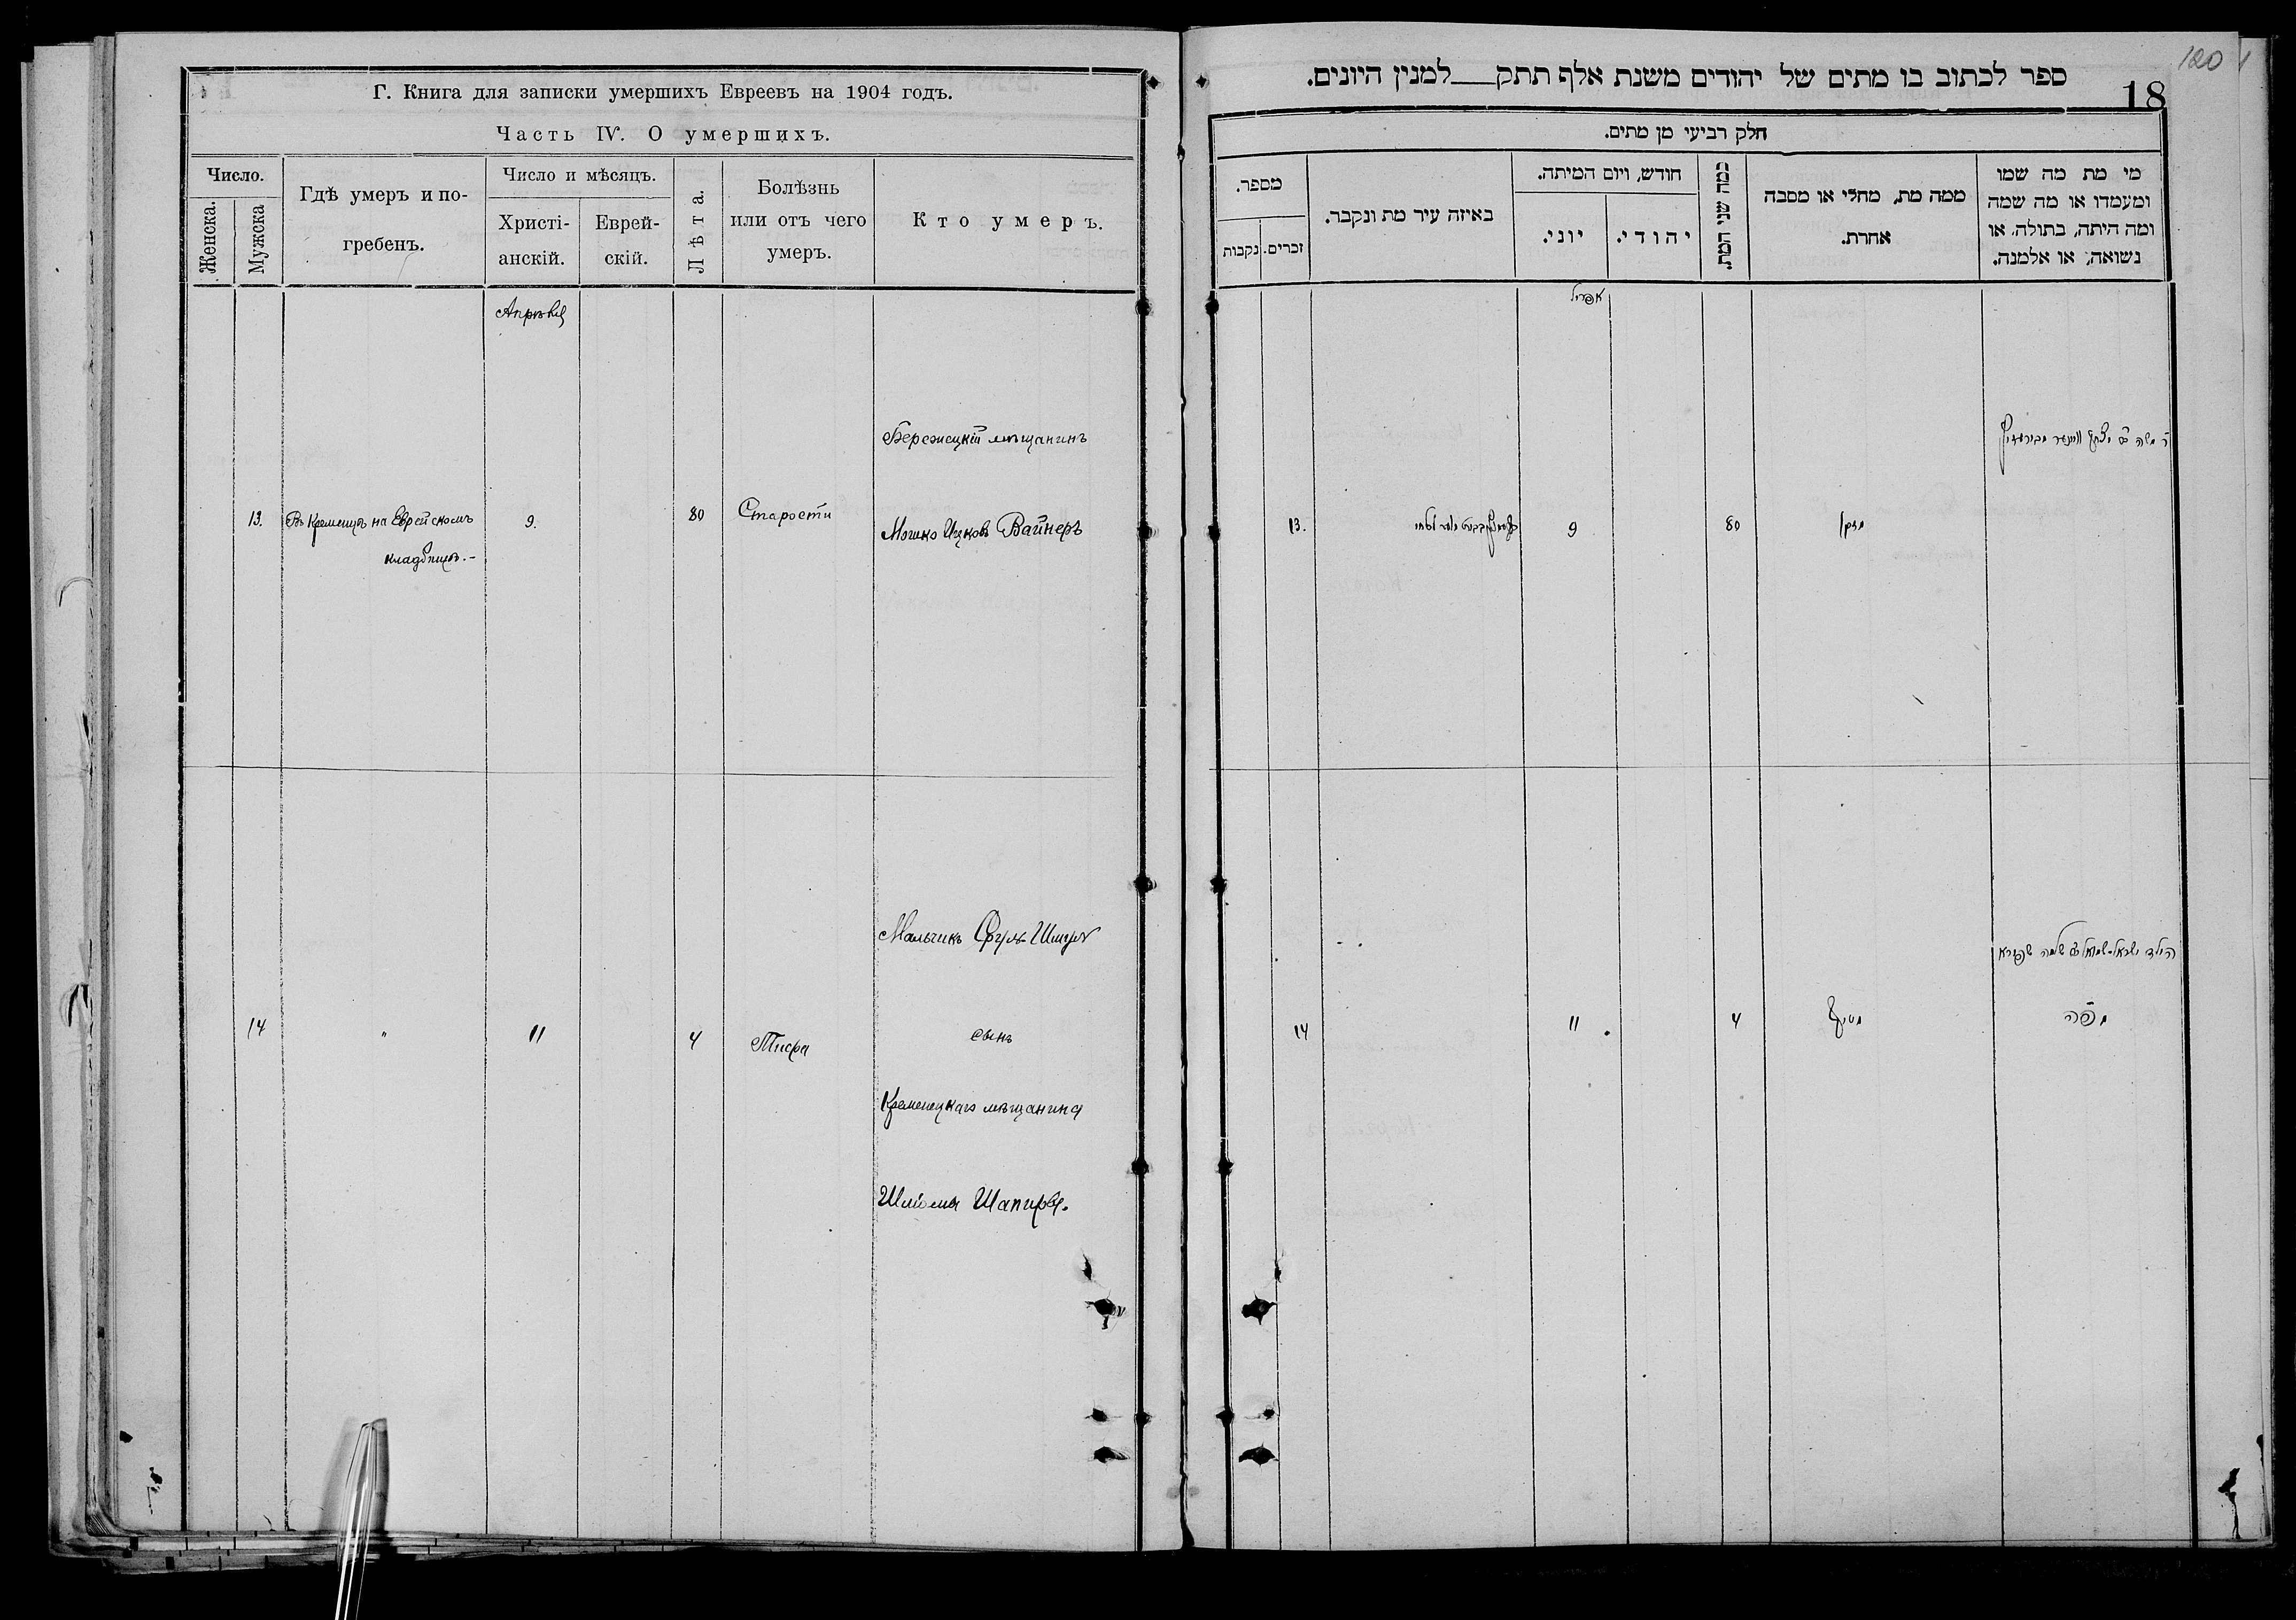 Г. Книга для записки умершихъ Евреевъ на 1904 годъ.
Часть IV. О умершихъ.
Число.
Женска.
Мужска
Гдѣ умеръ и по-
гребенъ.
Число и мѣсяцъ.
Христі-
анскій.
Еврей-
скій.
Лѣта.
Болѣзнь
или отъ чего
умеръ.
Кто умеръ.
Апрѣль
Бережецкій мѣщанинъ
13. Въ Кременцѣ на Еврейскомъ 9. 80 Старости Мошко Ицковъ Вайнеръ
кладбищѣ.-
Мальчикъ Сруль Шмуль
14 " 11 4 Тифа сынъ
Кременецкаго мѣщанина
Шлёмы Шапиры.
120
18
ספר לכתוב בו מתים של יהודים משנת אלף תתק למנין היונים.
חלק רביעי מן מתים.
מי מת מה שמו
ומעמדו או מה שמה
ומה היתה, בתולה, או
נשואה, או אלמנה.
ממה מת, מחלי או מסבה
אחרת.
כמה שני המת.
חודש, ויום המיתה.
יהודי.
יוני.
באיזה עיר מת ונקבר.
מספר.
זכרים.
נקבות
אפריל
ר משה ב יצחק
מזקן 80 9 13.
הילד ישראל-שמואל ב שלמה שפירא
4 11 14